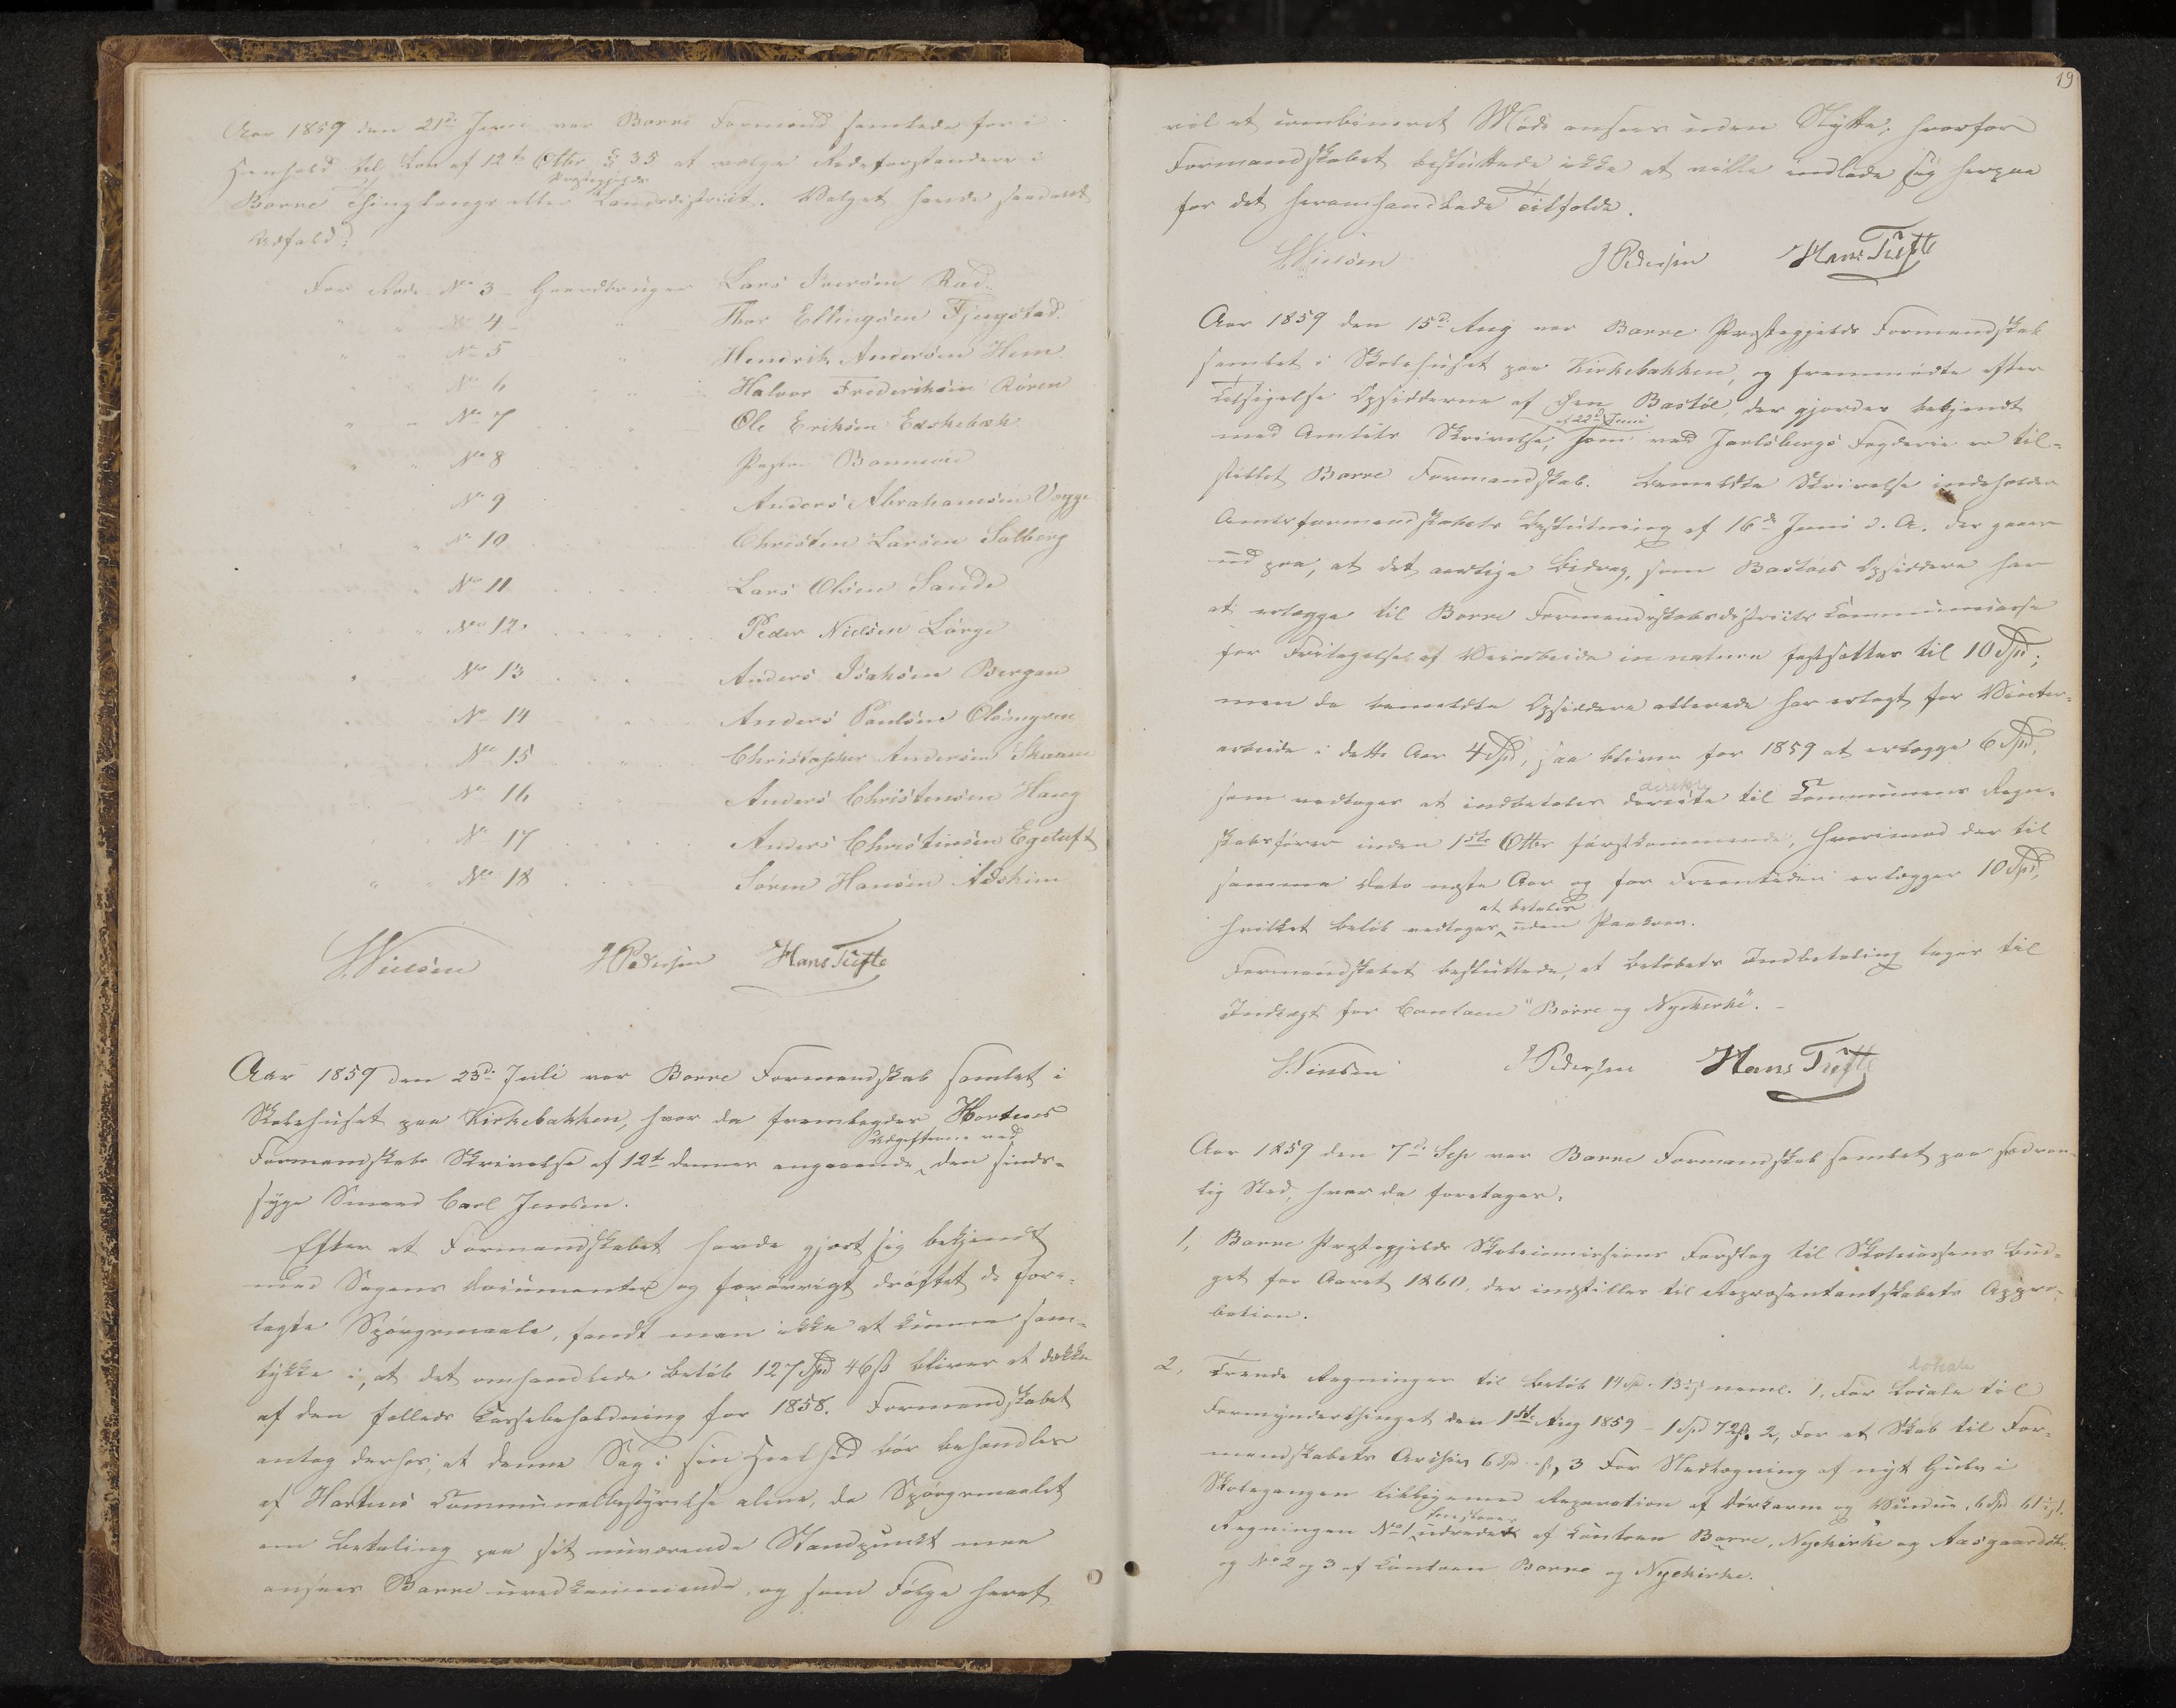 Aar 1859 den 21de Juni var Borre Formænd samlede for i
Henhold til Lov af 12te Otbr § 35 at vælge Rodeforstandere i
Borre Thinglaugs eller Præstegjelds Landdistrict. Valget havde saadant
Udfald:
For Rode No 3 – Gaardbruger Lars Iversen Rød.
" " No 4 – " Thor Ellingsen Fjugstad.
" " No 5 " Hendrik Andersen Hem
" " No 6 " Halvor Frederiksen Røren
" " No 7 " Ole Eriksen Eskebæk
" " No 8
No 9 Anders Abrahamsen Vegge
" No 10 Christen Larsen Solberg
" No 11 Lars Olsen Sande
" No 12 " Peder Nielsen Lørge
" No 13 Anders Isaksen Bergan
No 14 " Anders Paulsen
No 15 " Christopher Andersen Skaane
No 16 " Anders Christensen Haug
No 17 Anders Christensen Egetuft
" " No 18 Søren Hansen Adskim
Nielsen J Pedersen Hans Tufte
Aar 1859 den 23de Juli var Borre Formandskab samlet i
Skolehuset paa Kirkebakken, hvor da fremlagdes Hortens
Formandskabs Skrivelse af 12te dennes angaaende Udgifterne ved den sinds-
syge Smed Carl Jensen.
Efter at Formandskabet havde gjort sig bekjendt
med Sagens Documenter og forøvrigt drøftet de fore-
lagte Spørgsmaale, fandt man ikke at kunne sam-
tykke i, at det omhandlede Beløb 127 Spd 46 ß bliver at dække
af den fælleds Kassebeholdning for 1858. Formandskabet
antog derhos, at denne Sag i sin Heelhed bør behandles
af Hortens Communalbestyrelse alene, da Spørgsmaalet
om Betaling paa sit nuværende Standpunkt maa
ansees Borre uvedkommende, og som Følge heraf
19
vil et combineret Møde ansees uden Nytte; hvorfor
Formandskabet besluttede ikke at ville indlade sig herpaa
for det heromhandlede Tilfælde.
Nielsen J Pedersen Hans Tufte
Aar 1859 den 15de Aug var Borre Præstegjelds Formandskab
samlet i Skolehuset paa Kirkebakken, og fremmødte efter
Tilsigelse Opsidderne af Øen Bastøe, der gjordes bekjendt
med Amtets Skrivelse, af 22de Juni som ved Jarlsbergs Fogderie er til-
stillet Borre Formandskab. Bemeldte Skrivelse indeholder
Amtsformandskabets Beslutning af 16de Juni d. A. der gaaer
ud paa, at det aarlige Bidrag, som Bastøes Opsiddere har
at erlægge til Borre Formandskabsdistricts Communecasse
for Fritagelse af Veiarbeide in natura fastsættes til 10 Spd;
men da bemeldte Opsiddere allerede har erlagt for Vinter-
arbeide i dette Aar 4 Spd, saa bliver for 1859 at erlægge 6 Spd,
som vedtoges at indbetales directe direkte til Communens Regn-
skabsfører inden 1ste Otbr førstkommende, hvorimod der til
samme Dato næste Aar og for Fremtiden erlægges 10 Spd,
hvilket Beløb vedtoges at betales uden Paakrav.
Formandskabet besluttede, at Beløbets Indbetaling tages til
Indtægt for Contoen "Borre og Nykirke". –
Nielsen J Pedersen Hans Tufte
Aar 1859 den 7de Sep var Borre Formandskab samlet paa sædvan-
lig Sted, hvor da foretages:
1, Borre Præstegjelds Skolecomissions Forslag til Skolecassens Bud-
get for Aaret 1860, der indstilles til Repræsentantskabets Appro-
bation.
2, Trende Regninger til Beløb 14 Spd. 13 ß neml. 1, For Locale lokale til
Formynderthinget den 1ste Aug 1859 – 1 Spd 72 ß. 2, For et Skab til For-
mandskabets Archiv 6 Spd ß, 3 For Nedlægning af nyt Gulv i
Skolegangen tilligemed Reparation af Dørkarm og Vindue, 6 Spd 61 ß.
Regningen No 1 udredes af Contoen Borre, Nykirke og Aasgaardstr.
og No 2 og 3 af Contoen Borre og Nykirke.